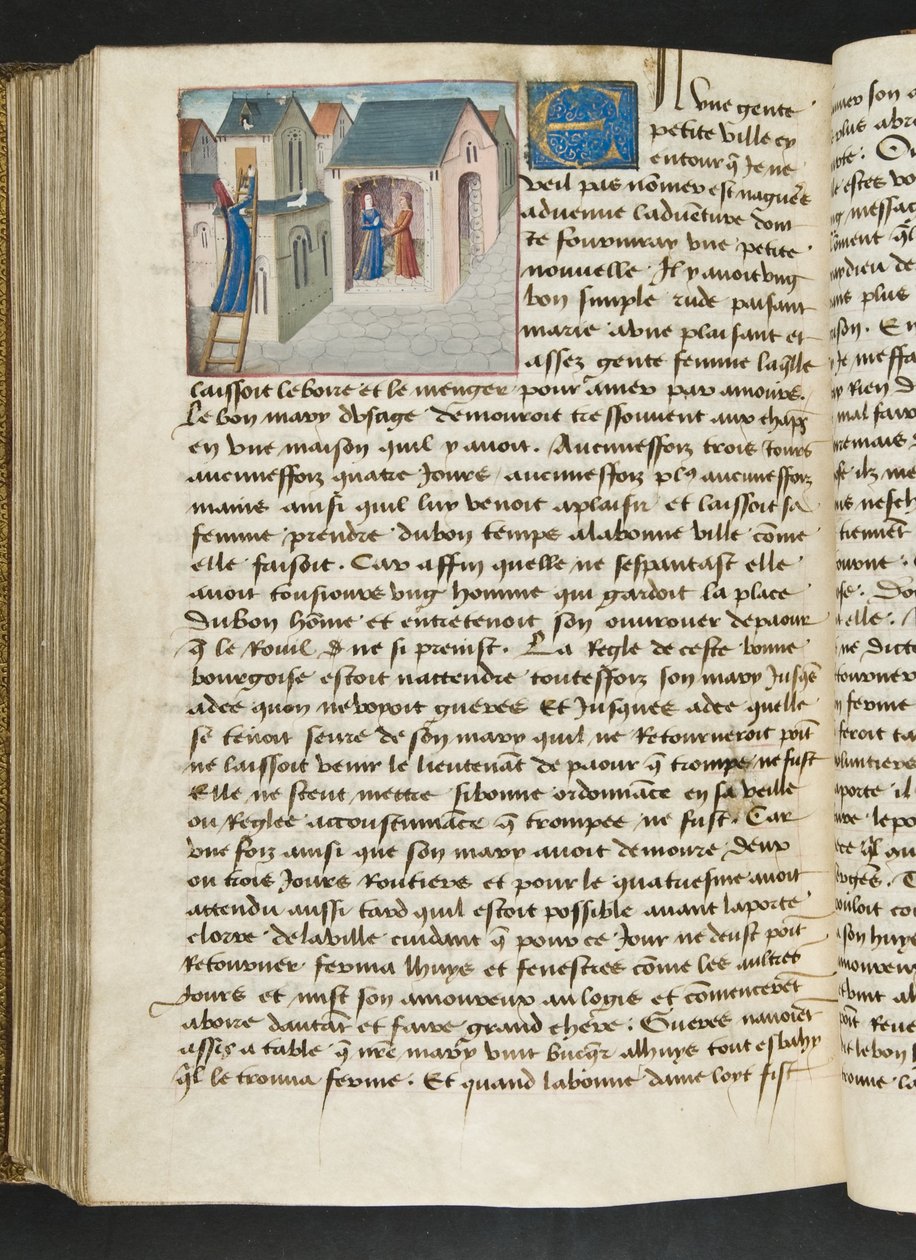 En vne gente
petite ville cy
entour q̄ Je ne
veil pas nõmer est nagueres
aduenue laduẽture dont
Je fourniray vne petite
nouuelle. Il y auoit vng
bon simple rude paisant
marie a vne plaisant et
assez gente femme laq̄lle
laissoit le boire et le menger pour amer par amours.
Le bon mary dusage demouroit tressouuent aux chãps
en vne maison quil y auoit. Aucuneffoiz trois Jours
aucuneffoiz quatre Jours aucuneffoiz plꝰ aucuneffoiz
mains ainsi quil luy venoit a plaisir et laissoit sa
femme prendre du bon temps a la bonne ville cõme
elle faisoit. Car affin quelle ne sespantast elle
auoit tousiours vng homme qui gardoit la place
du bon hõme et entretenoit son ouurouer de paour
q̄ le Rouil ne si prenist. La Regle de ceste bonne
bourgoise estoit nattendre toutesfoiz son mary Jusq̄s
adce quon ne voyoit gueres Et Jusques adce quelle
se tenoit seure de son mary quil ne Retourneroit poĩt
ne laissoit venir le lieutenãt de paour q̄ trompee ne fust
Elle ne sceut mettre si bonne ordonnãce en sa veille
ou Reglee accoustumãce q̄ trompee ne fust. Car
vne foiz ainsi que son mary auoit demoure deux
ou trois Jours Routiers et pour le quatriesme auoit
attendu aussi tard quil estoit possible auant la porte
clorre de la ville cuidant q̄ pour ce Jour ne deust poĩt
Retourner ferma lhuys et fenestres cõme les aultres
Jours et mist son amoureux au logis et cõmencerẽt
a boire dautãt et faire grand chere. Gueres nauoiẽt
assis a table q̄ nr̃e mary vint bucq̄r a lhuys tout esbahy
q̄l le trouua ferme. Et quand la bonne dame loyt fist